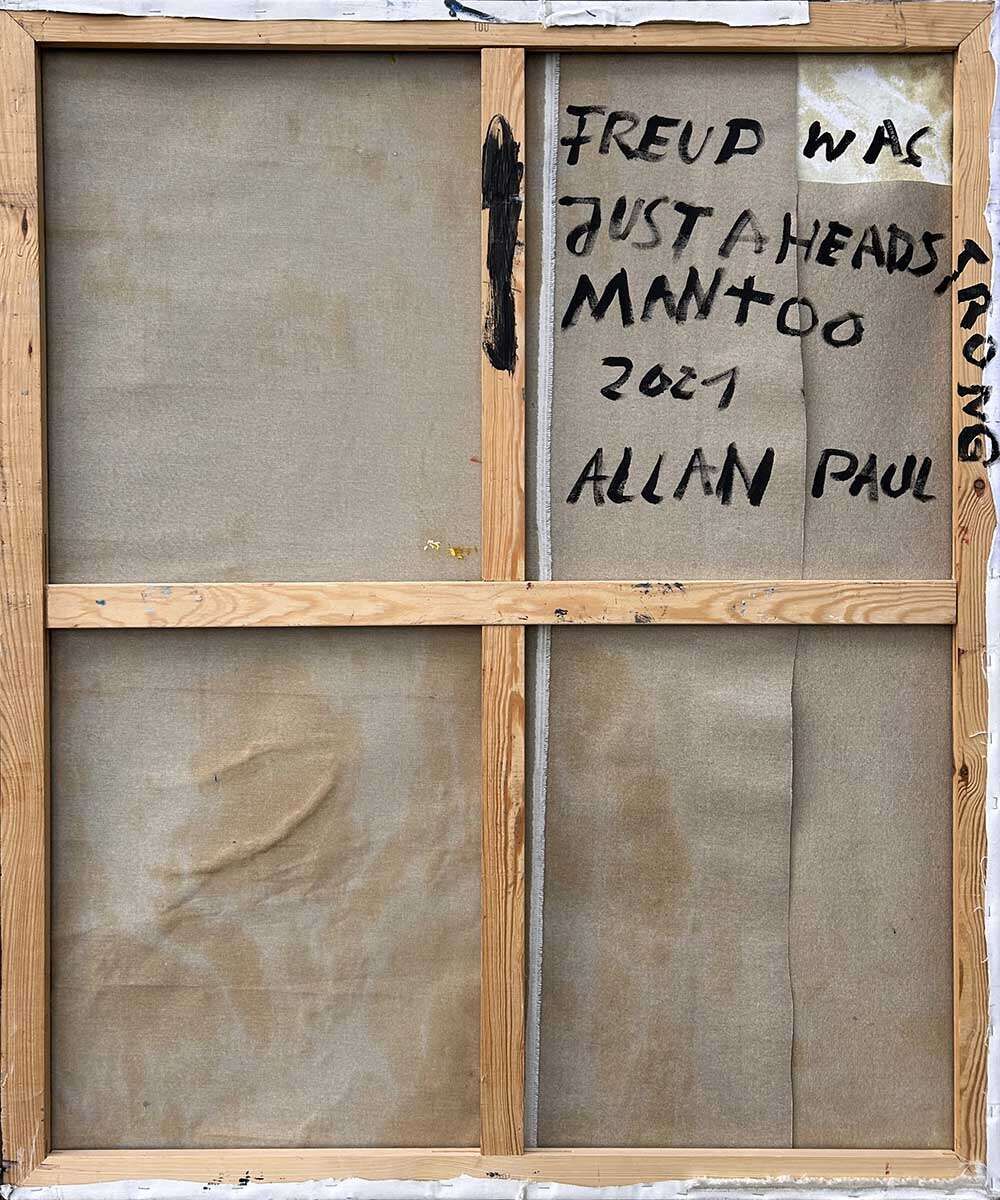 FREUD WAS
JUST A HEADS,TRONG
MAN TOO
2021
ALLAN PAUL